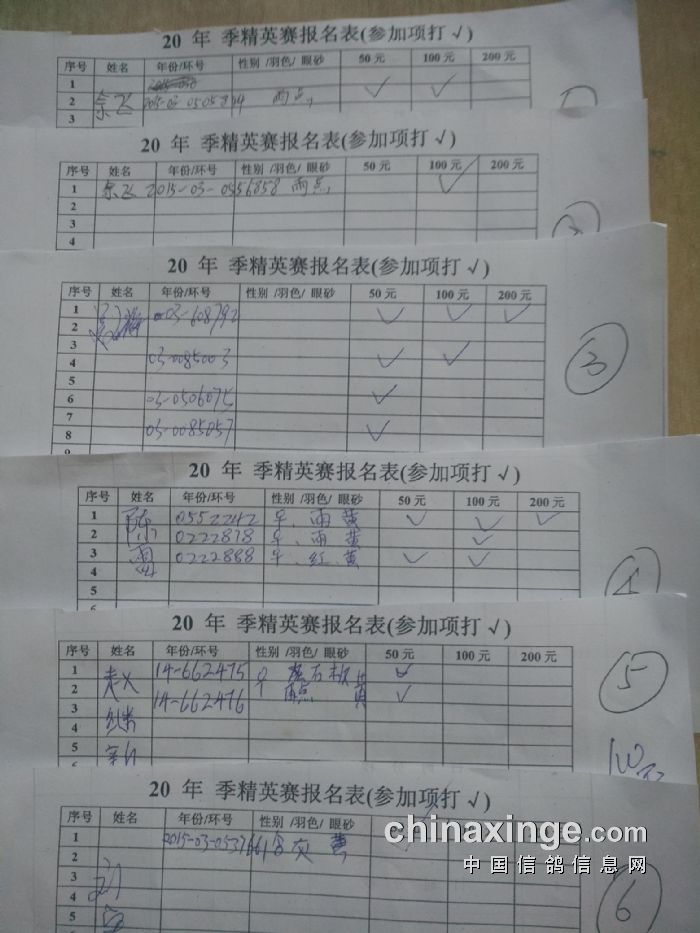 20 年 季精英赛报名表(参加项打 √)
序号 姓名 年份/环号 性别 /羽色/ 眼砂 50 元 100 元 200 元
1
2 2015-03- 雨点 √ √
3
20 年 季精英赛报名表(参加项打 √)
序号 姓名 年份/环号 性别 /羽色/ 眼砂 50 元 100 元 200 元
1 2015-03-0556858 雨点 √
2
3
4
20 年 季精英赛报名表(参加项打 √)
序号 姓名 年份/环号 性别 /羽色/ 眼砂 50 元 100 元 200 元
1 03-608792 √ √ √
2
3
4 03-0085003 √ √
5
6 03-0506075 √
7
8 03-0085057 √
3
20 年 季精英赛报名表(参加项打 √)
序号 姓名 年份/环号 性别 /羽色/ 眼砂 50 元 100 元 200 元
1 陈 0552242 雨 黄 √ √ √
2 0222878 雨 黄 √
3 0222888 红 黄 √ √
4
5
4
20 年 季精英赛报名表(参加项打 √)
序号 姓名 年份/环号 性别 /羽色/ 眼砂 50 元 100 元 200 元
1 赵 14-662475 ♀ 石板 √
2 14-662476 雨点 黄 √
3
4
5
5
20 年 季精英赛报名表(参加项打 √)
序号 姓名 年份/环号 性别 /羽色/ 眼砂 50 元
1 2015-03- 灰 黄
2
3
4
5
6
chinaxinge.com
中国信鸽信息网